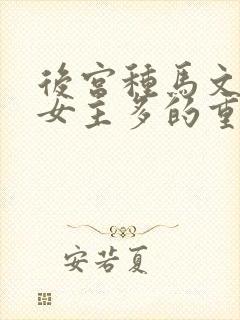 後宮種馬文
女主多的重
安若夏